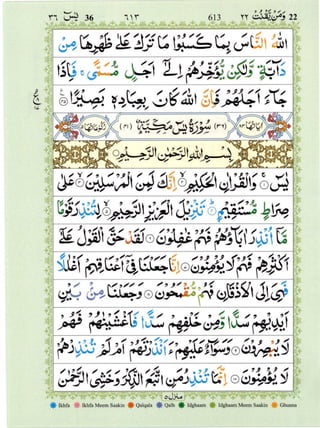 ٣٦ يٰسٓ 36 ٦١٣ 613 وَمَنْ يَّقْنُتْ ٢٢ 22
اللّٰهُ النَّاسَ بِمَا كَسَبُوْا مَا تَرَكَ عَلٰى ظَهْرِهَا مِنْ
دَآبَّةٍ وَّلٰكِنْ يُّؤَخِّرُهُمْ اِلٰٓى اَجَلٍ مُّسَمًّىۚ فَاِذَا
جَآءَ اَجَلُهُمْ فَاِنَّ اللّٰهَ كَانَ بِعِبَادِهٖ بَصِيْرًا
اٰيَاتُهَا ٨٣ (٣٦) سُوْرَةُ يٰسٓ مَكِّيَّةٌ (٤١) رُكُوْعَاتُهَا ٥
بِسْمِ اللّٰهِ الرَّحْمٰنِ الرَّحِيْمِ
يٰسٓ وَالْقُرْاٰنِ الْحَكِيْمِ اِنَّكَ لَمِنَ الْمُرْسَلِيْنَ عَلٰى
صِرَاطٍ مُّسْتَقِيْمٍ تَنْزِيْلَ الْعَزِيْزِ الرَّحِيْمِ لِتُنْذِرَ قَوْمًا
مَّآ اُنْذِرَ اٰبَآؤُهُمْ فَهُمْ غٰفِلُوْنَ لَقَدْ حَقَّ الْقَوْلُ عَلٰٓى
اَكْثَرِهِمْ فَهُمْ لَا يُؤْمِنُوْنَ اِنَّا جَعَلْنَا فِيْٓ اَعْنَاقِهِمْ اَغْلٰلًا
فَهِيَ اِلَى الْاَذْقَانِ فَهُمْ مُّقْمَحُوْنَ وَجَعَلْنَا مِنْۢ بَيْنِ
اَيْدِيْهِمْ سَدًّا وَّمِنْ خَلْفِهِمْ سَدًّا فَاَغْشَيْنٰهُمْ فَهُمْ
لَا يُبْصِرُوْنَ وَسَوَآءٌ عَلَيْهِمْ ءَاَنْذَرْتَهُمْ اَمْ لَمْ تُنْذِرْهُمْ
لَا يُؤْمِنُوْنَ اِنَّمَا تُنْذِرُ مَنِ اتَّبَعَ الذِّكْرَ وَخَشِيَ الرَّحْمٰنَ
منزل ٥
Ikhfa Ikhfa Meem Saakin Qalqala Qalb Idghaam Idghaam Meem Saakin Ghunna